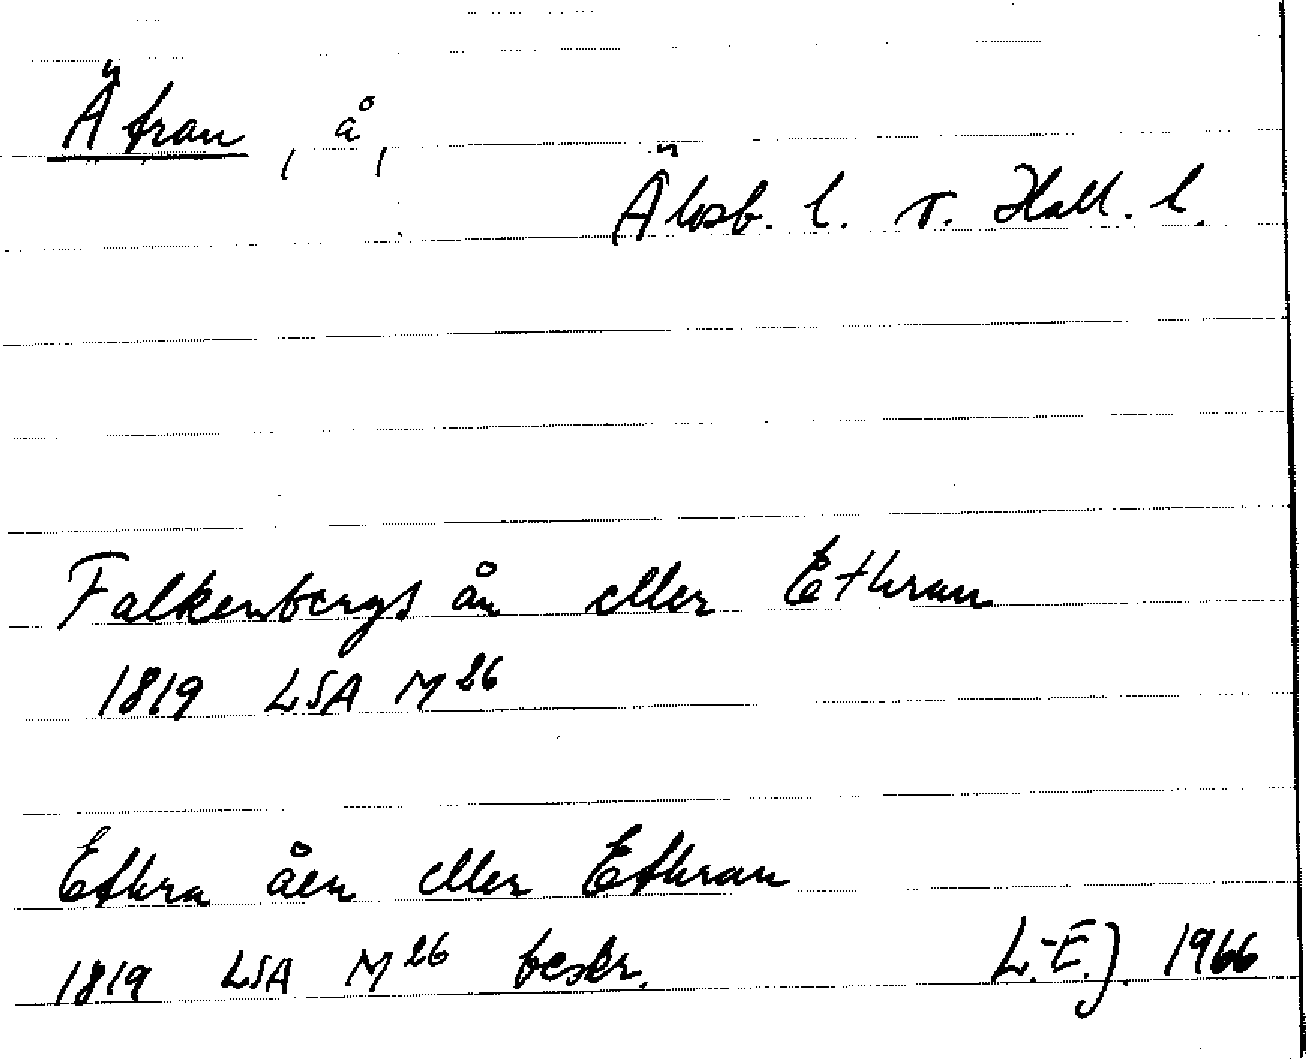 Ätran, å,
Älvsb. l. o. Hall. l.
Falkenbergs ån eller Ethran
1819 LSA M 26
Ethra åen eller Ethran
1819 LSA M 26 beskr. L.-E.J. 1966